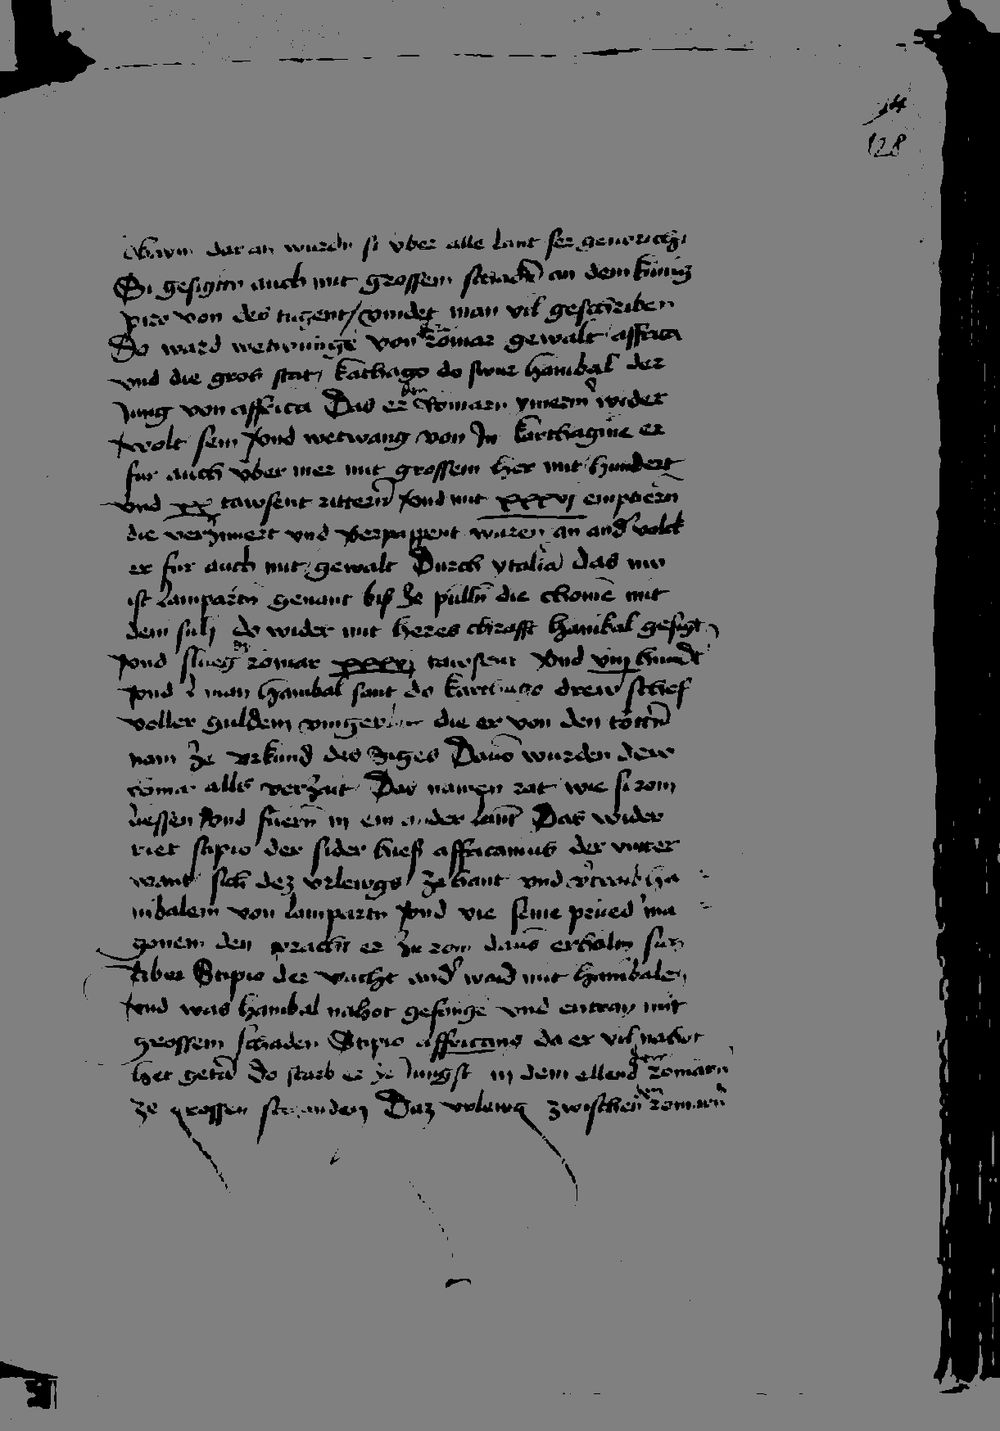 14
128
dar an wurdn si vber alle lant ser
Si gesigtn auch mit grossem an dem künig
von des tugent / vindet man vil geschriben
Do ward von der romar gewalt affrica
vnd die gros stat / kathago do swur hanibal der
Jung von affrica Das er den Romarn ymerm wider
wolt sein vnd wetwang von Jn karthagine er
fur auch vber mer mit grossem her mit hundert
vnd xx tawsent rittern vnd mit xxxvj
die vnd waren an and volck
er fur auch mit gewalt Durch ytalia das nw
ist lampartn genant bis ze pülln die chome mit
dem do wider mit heres chrafft hanibal gesigt
vnd slueg der romar tawsent vnd viiij hundt
vnd man hanibal sant do karthago drew schef
voller guldem die er von den tottn
nam ze vrkund des siges Dauo wurden dew
romar alle verzait Das namen rat wie si rom
liessen vnd fuern in ein ander lant Das wider
riet scipio der sider hies affricanus der vnter
want sich dez vrlewgs ze hant vnd
nibalem von lampartn vnd vie seine prued ma
gonem den pracht er zu rom dauo
aber Scipio der vacht and waid mit hanibale
vnd was hanibal nahot gefange vnd entran mit
grossem schaden Scipio affricano da er vil nahot
het geta do starb er ze Jungst in dem ellend der romarn
ze grossen schanden Daz vrlewg zwischen den romarn